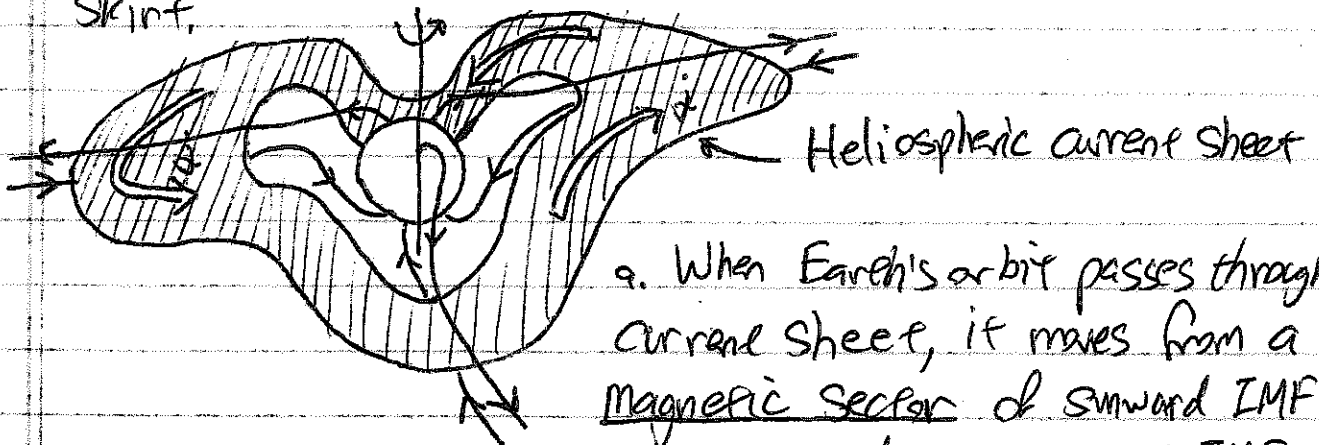 skirt.
Heliospheric current sheet
a. When Earth's orbit passes through
current sheet, it moves from a
magnetic sector of sunward IMF
IMF